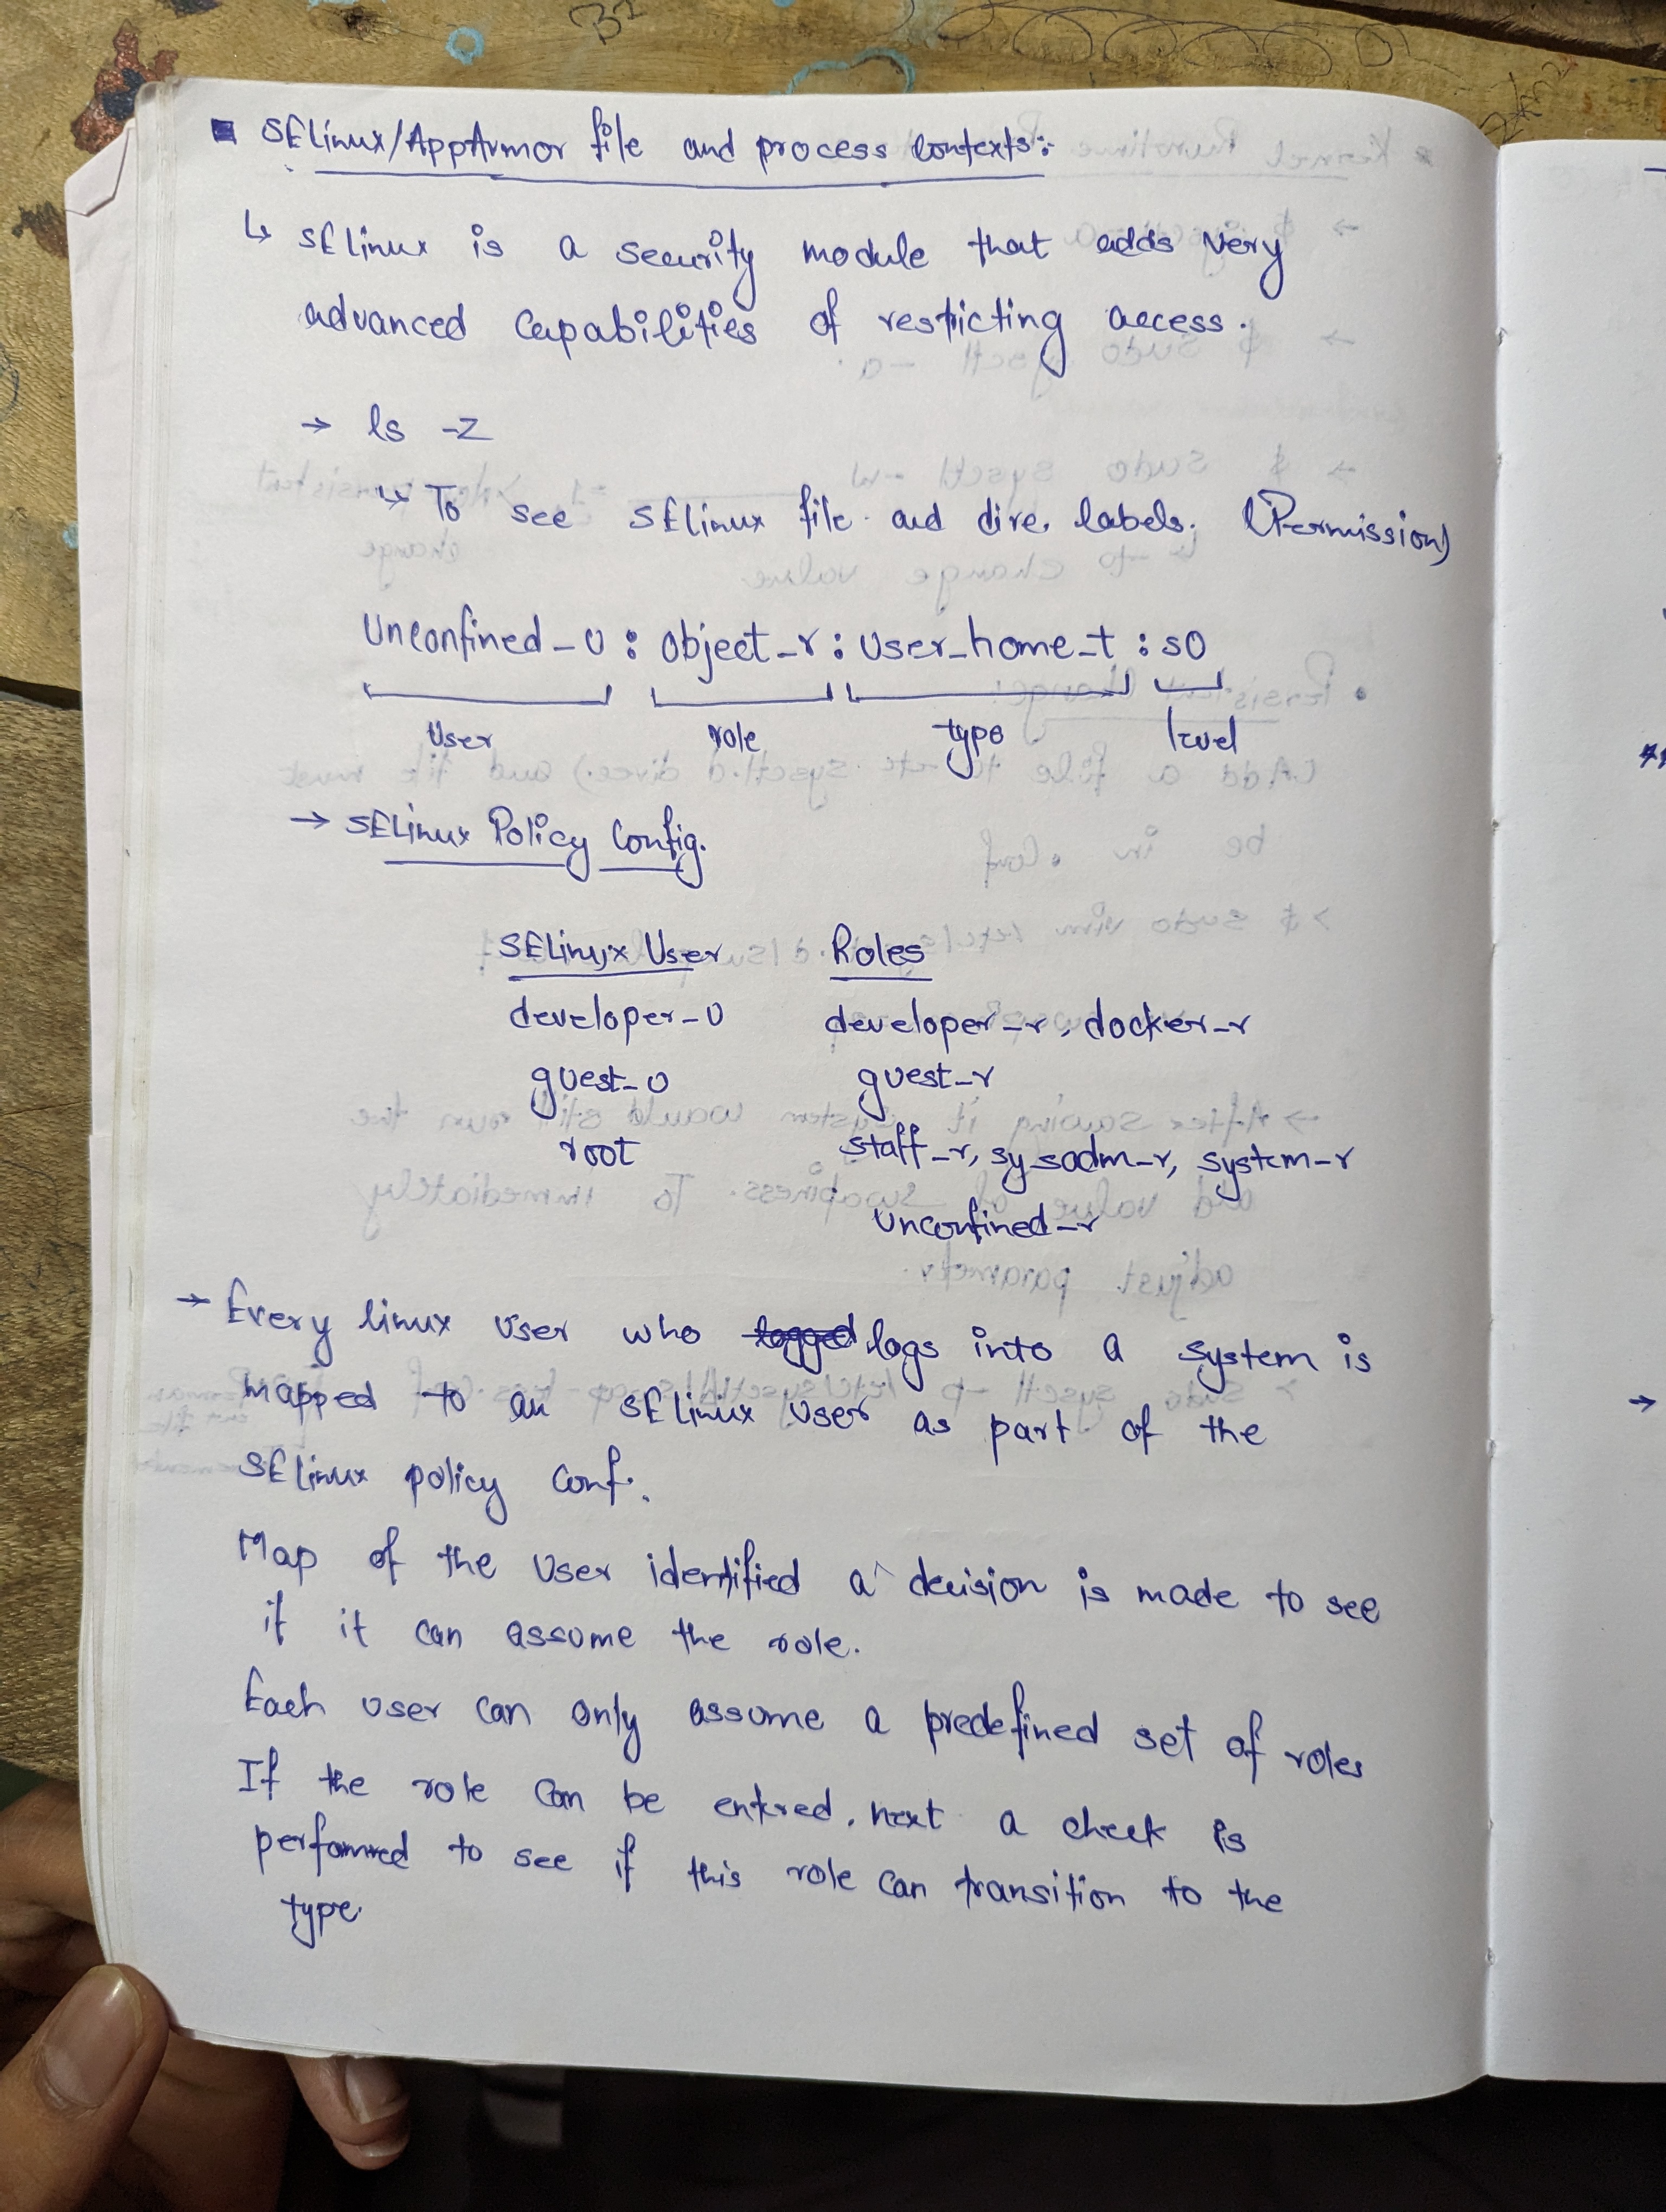 ■ SELinux/AppArmor file and process contexts:-
↳ SELinux is a security module that adds very
advanced capabilities of resticting access.
→ ls -Z
↳ To see SELinux file and dire. labels. (Permission)
Unconfined_u : object_r : user_home_t : s0
User role type level
→ SELinux Policy Config.
SELinux User Roles
developer_u developer_r, docker_r
guest_u guest_r
root staff_r, sysadm_r, system_r
unconfined_r
→ Every linux user who logged logs into a system is
mapped to an SELinux user as part of the
SELinux policy conf.
Map of the user identified a decision is made to see
if it can assume the role.
Each user can only assume a predefined set of roles
If the role can be entred, next a check is
performed to see if this role can transition to the
type